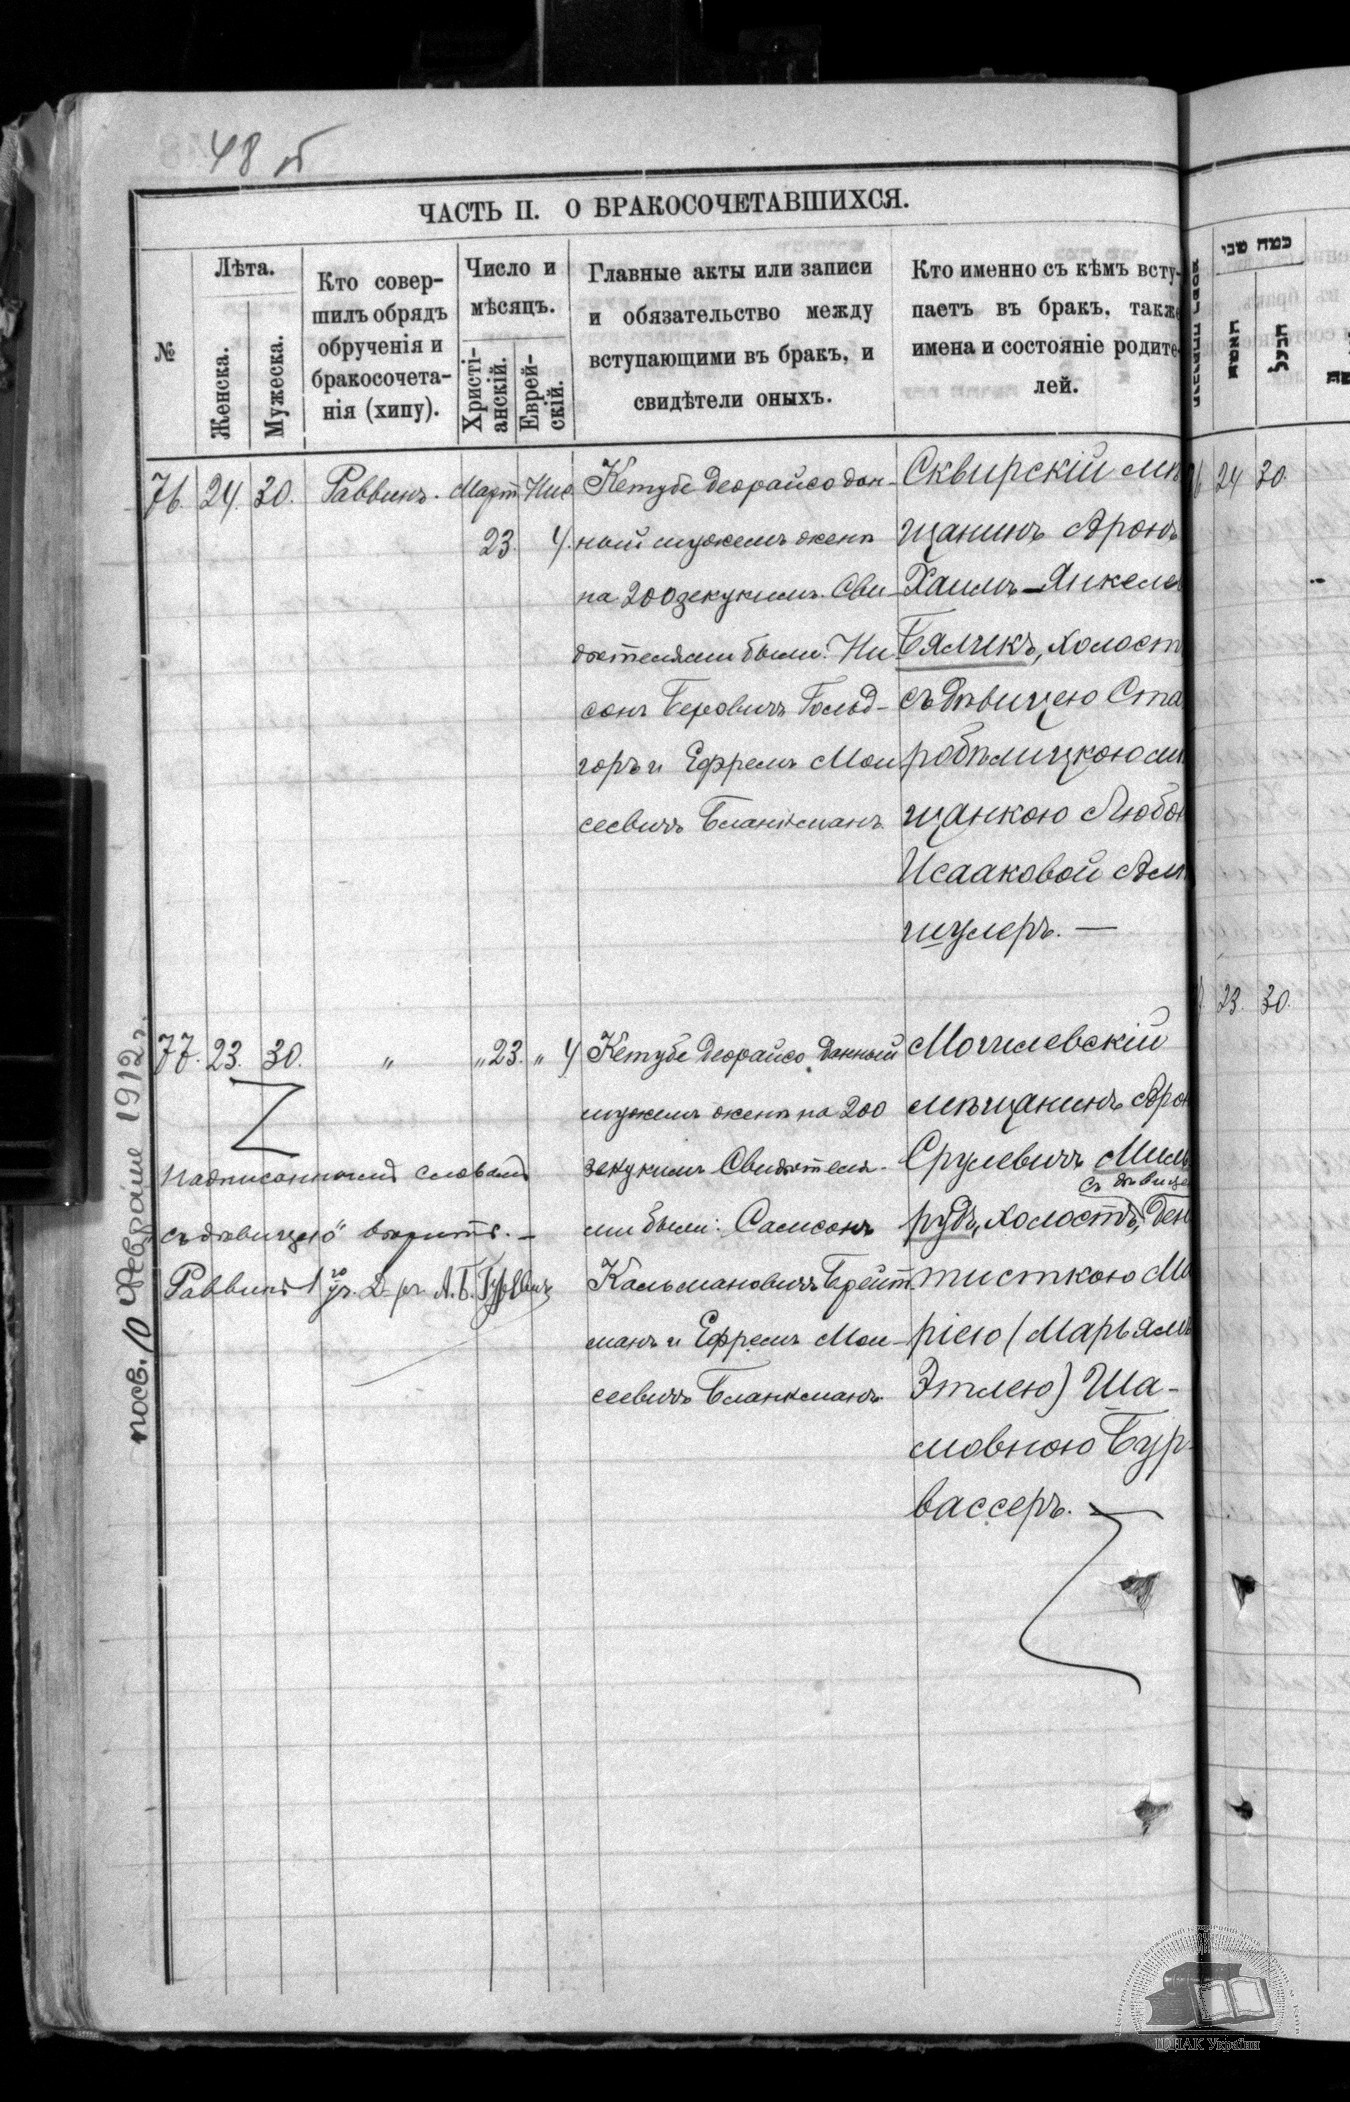 48 об
ЧАСТЬ II. О БРАКОСОЧЕТАВШИХСЯ.
№
Лѣта.
Женска.
Мужеска.
Кто совер-
шилъ обрядъ
обрученія и
бракосочета-
нія (хипу).
Число и
мѣсяцъ.
Христі-
анскій.
Еврей-
скій.
Главные акты или записи
и обязательство между
вступающими въ бракъ, и
свидѣтели оныхъ.
Кто именно съ кѣмъ всту-
паетъ въ бракъ, также
имена и состояніе родите-
лей.
76. 24. 30. Раввинъ. Март 23. Нис 4.
Кетубе деорайсо дан-
ный мужемъ женѣ
на 200 зекукимъ. Сви-
дѣтелями были: Ни
сонъ Беровичъ Гольд-
горъ и Ефремъ Мои
сеевичъ Бланкманъ
Сквирскій мѣ
щанинъ Аронъ
Хаимъ-Янкеле
Бяликъ, холост
съ дѣвицею Ста
робѣлицкою мѣ
щанкою Любо
Исааковой Аль
шулеръ. —
77. 23. 30. " " 23. " 4
Кетубе деорайсо данный
мужемъ женѣ на 200
зекукимъ Свидѣтеля-
ми были: Самсонъ
Кальмановичъ Брейт
манъ и Ефремъ Мои-
сеевичъ Бланкманъ
Могилевскій
мѣщанинъ Аро
Срулевичъ Миль
съ дѣвице
рудъ, холостъ, Ден
тисткою Ма
ріею (Марьямъ
Этлею) Ша-
мовною Бур-
вассеръ.
Надписанному словамъ
"съ дѣвицею" вѣрить. —
Раввинъ 1го уч. Д-ръ. А. Б. Гуревичъ
посв. 10 Февраля 1912 г.
כמה שני
האשה
הבעל
76 24 30.
23. 30.
ЦДІАК України